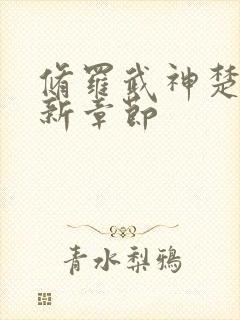 脩羅武神楚
新章節
青水梨鴉